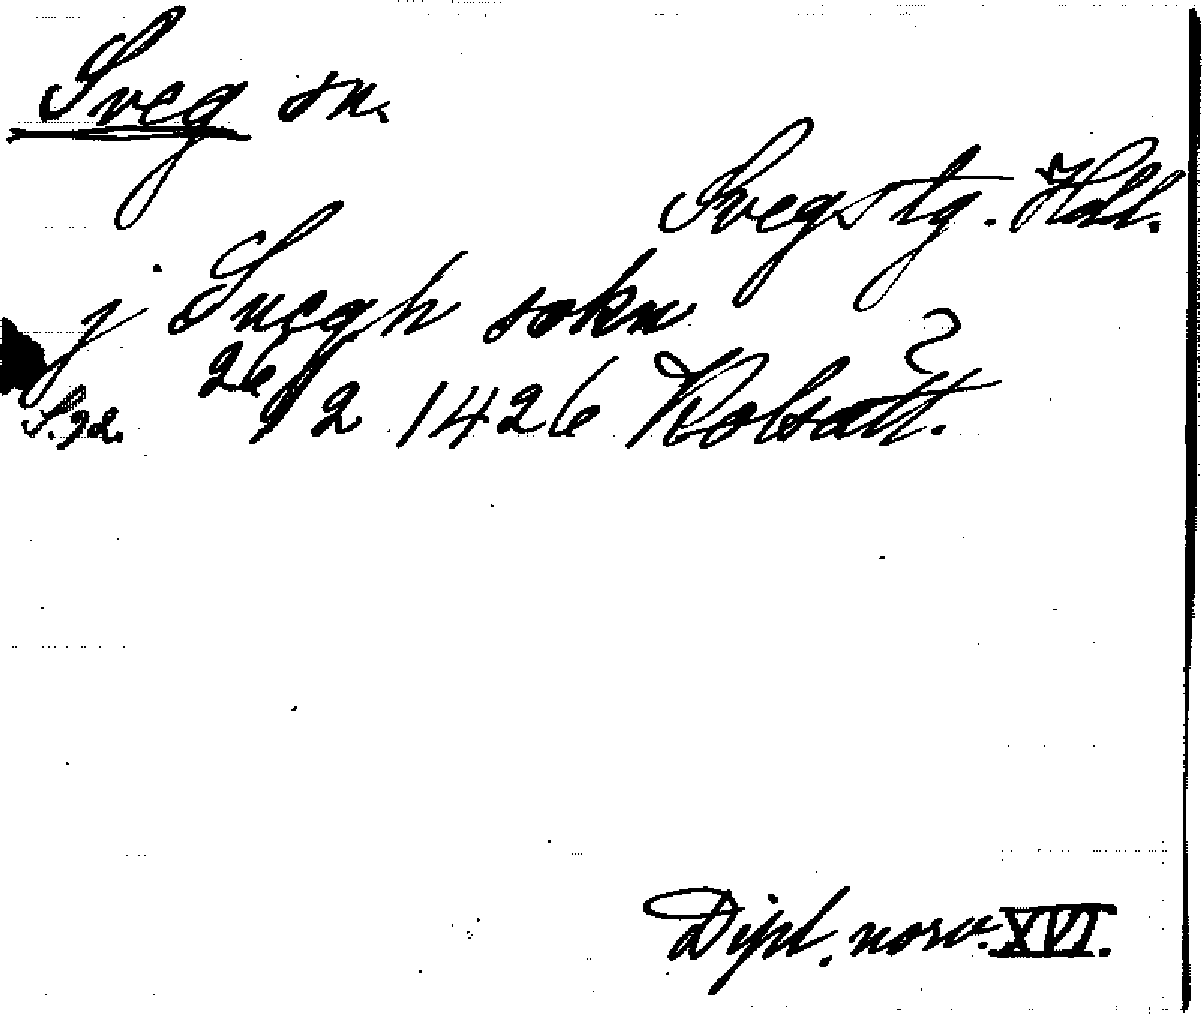 Sveg sn.
Svegs tg. Häll.
j Suegh sokn
S. 92. 26/2 1426 Kolsätt.
Dipl. norv. XVI.